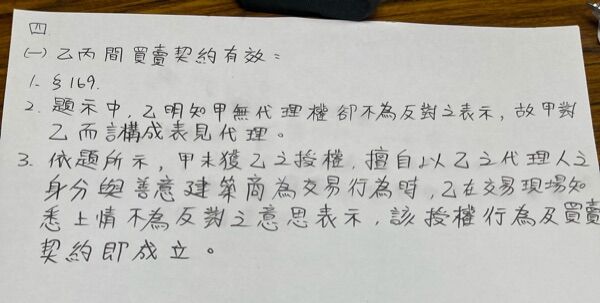 四
(一) 乙丙間買賣契約有效：
1. §169.
2. 題示中，乙明知甲無代理權卻不為反對之表示，故甲對
乙而言構成表見代理。
3. 依題所示，甲未獲乙之授權，擅自以乙之代理人之
身分與善意建築商為交易行為時，乙在交易現場知
悉上情不為反對之意思表示，該授權行為及買賣
契約即成立。